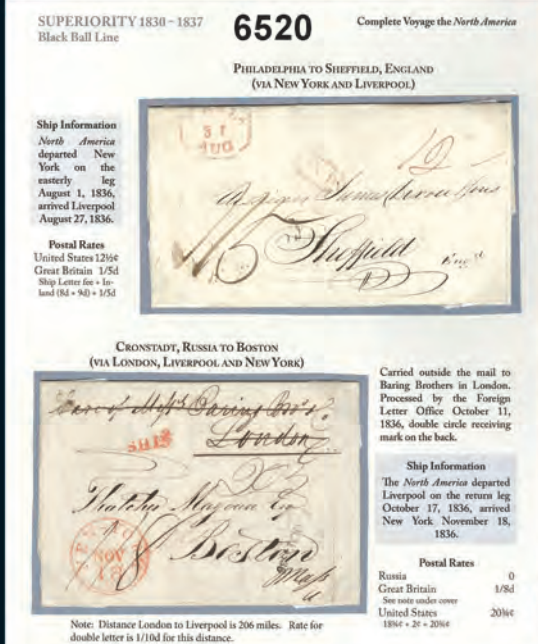 SUPERIORITY 1830 – 1837
Black Ball Line
6520
Complete Voyage the North America
PHILADELPHIA TO SHEFFIELD, ENGLAND
(VIA NEW YORK AND LIVERPOOL)
Ship Information
North America
departed New
York on the
easterly leg
August 1, 1836,
arrived Liverpool
August 27, 1836.
Postal Rates
United States 12½¢
Great Britain 1/5d
Ship Letter fee + In-
land (8d + 9d) = 1/5d
31
AUG
12
Sheffield
CRONSTADT, RUSSIA TO BOSTON
(VIA LONDON, LIVERPOOL AND NEW YORK)
Care of Messrs Baring Bros
London
SHIP
Thatcher Magoun Esq
NOV
18
Boston
Mass
Carried outside the mail to
Baring Brothers in London.
Processed by the Foreign
Letter Office October 11,
1836, double circle receiving
mark on the back.
Ship Information
The North America departed
Liverpool on the return leg
October 17, 1836, arrived
New York November 18,
1836.
Postal Rates
Russia 0
Great Britain 1/8d
See note under cover
United States 20¾¢
18¾¢ + 2¢ = 20¾¢
Note: Distance London to Liverpool is 206 miles. Rate for
double letter is 1/10d for this distance.